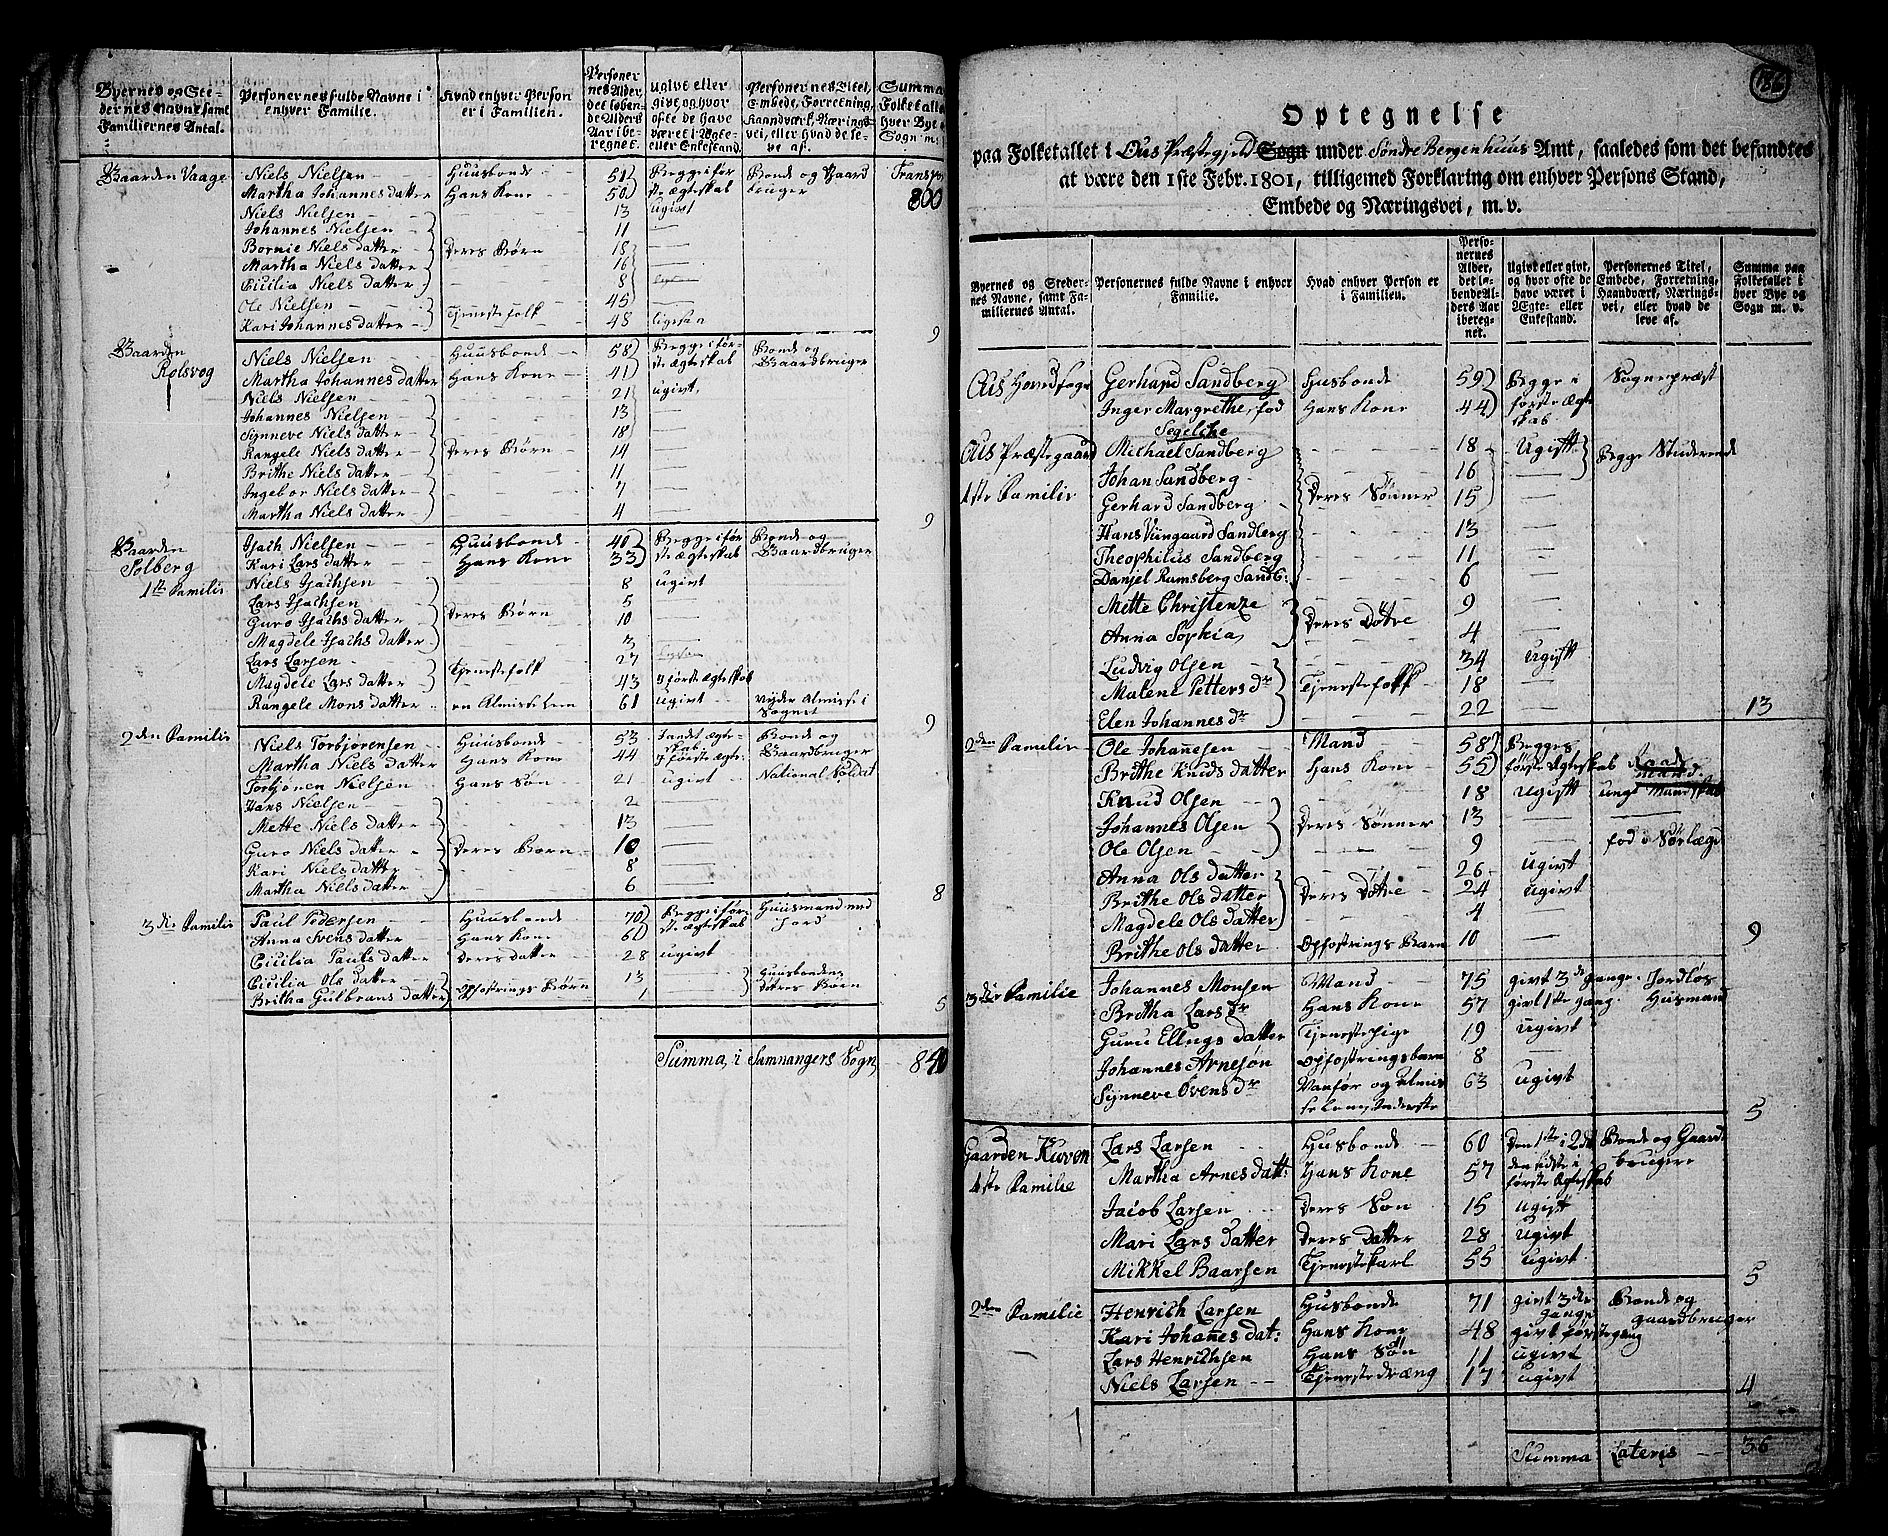 Byernes og Ste-
dernes Navne, samt
Familiernes Antal.
Personernes fulde Navne i
enhver Familie.
Hvad enhver Person
er i Familien.
Personer
nes Alder,
det løben-
de Alders
Aar ibe-
regnet.
ugivt eller
givt, og hvor
ofte de have
været i Ægte-
eller Enkestand.
Personernes Titel,
Embede, Forretning,
Haandværk, Nærings-
vei, eller hvad de le-
ve af.
Summa
Folketalle
hver Bye
Sogn m.
Gaarden Vaage Niels Nielsen Huusbonde 51 Begge i før Bonde og Gaard Transp
Martha Johannes datter Hans Kone 50 ste ægteskab bruger 800
Niels Nielsen 13 ugivt
Johannes Nielsen 11 —
Bornie Niels datter Deres Børn 18 —
Martha Niels datter 16 —
Cicilia Niels datter 8
Ole Nielsen Tjenestefolk 45 —
Kari Johannes datter 48 ligesaa
9
Gaarden Niels Nielsen Huusbonde 58 Begge i før- Bonde og
Rolsvog Martha Johannes datter Hans Kone 41 ste ægteskab Gaardbruger
Niels Nielsen 21 ugivt
Johannes Nielsen 13 —
Synneve Niels datter 18 —
Rangele Niels datter Deres Børn 14 —
Brithe Niels datter 11 —
Ingebor Niels datter 7 —
Martha Niels datter 4 —
9
Gaarden Isach Nielsen Huusbonde 40 Begge i før Bonde og
Solberg Kari Lars datter Hans Kone 33 ste ægteskab Gaardbruger
1ste Familie Niels Isachsen 8 ugivt
Lars Isachsen 5
Guro Isachs datter Deres Børn 10 —
Magdele Isachs datter 3 —
Lars Larsen Tjenestefolk 27
Magdele Lars datter 43 i første ægteskab
Rangele Mons datter en Almisse lem 61 ugivt nyder Almisse i
Sognet
9
2den Familie Niels Torbjørensen Huusbonde 53 i andet ægte- Bonde og
skab
Martha Niels datter Hans Kone 44 i første ægte: Gaardbruger
Torbjønen Nielsen Hans Søn 21 ugivt National Soldat
Hans Nielsen 2 —
Mette Niels datter 13 —
Guro Niels datter Deres Børn 10 —
Kari Niels datter 8 —
Martha Niels datter 6 —
8
3die Familie Paul Pedersen Huusbonde 70 Begge i før- Huusmand med
Anna Svens datter Hans Kone 61 ste ægteskab Jord
Cicilia Pauls datter Deres datter 28 ugivt
Cicilia Ols datter Opfostrings Børn 13 — Huusbondens
Britha Gulbrans datter 1 — Deters Børn
5
Summa, i Samnangers Sogn 840
186
Optegnelse
paa Folketallet i Ous Præstegield Sogn under Søndre Bergenhuus Amt, saaledes som det befandtes
at være den 1ste Febr. 1801, tilligemed Forklaring om enhver Persons Stand,
Embede og Næringsvei, m. v.
Byernes og Steder-
nes Navne, samt Fa-
miliernes Antal.
Personernes fulde Navne i enhver
Familie.
Hvad enhver Person er
i Familien.
Perso-
nernes
Alder,
det lø-
bende Al-
ders Aar
iberegnet.
Ugivt eller givt,
og hvor ofte de
have været i
Ægte- eller
Enkestand.
Personernes Titel,
Embede, Forretning,
Haandværk, Nærings-
vei, eller hvad de
leve af.
Summa paa
Folketallet i
hver Bye og
Sogn m. v.
Ous Hovedsogn Gerhard Sandberg Husbonde 59 Begge i Sognepræst
Inger Margrethe, fød Hans Kone 44 første Ægte
Segelcke skab
Ous Præstegaard Michael Sandberg 18 Ugift Begge Studerende
Johan Sandberg 16 —
1ste Familie Gerhard Sandberg Deres Sønner 15 —
Hans Viingaard Sandberg 13 —
Theophilus Sandberg 11 —
Danjel Ramsberg Sandb: 6 —
Mette Christenze Deres Døtre 9 —
Anna Sophia 4 —
Ludvig Olsen 34 Ugift
Malene Petters dr Tjenestefolk 18 —
Elen Johannes dr 22 — 13
2den Familie Ole Johanesen Mand 58 Begge
Brithe Knuds datter Hans Kone 55 første Ægteskab
Knud Olsen 18 Ugift ungt Mandskab
Johannes Olsen Deres Sønner 13 —
Ole Olsen 9 — fød i Sørlægd
Anna Ols datter 26 Ugivt
Brithe Ols datter Deres Døtre 24 Ugivt
Magdele Ols datter 4 —
Brithe Ols datter Opfostrings Barn 10 — 9
3die Familie Johannes Monsen Mand 75 givt 3de gange. Jordløs
Britha Lars dr Hans Kone 57 givt 1ste gang. Husmand
Guru Ellings datter Tjenestepige 19 Ugivt
Johannes Arnesøn Opfostringsbarn 8 —
Synneve Ovens dr Vanfør og Almis 63 Ugivt
selem Inderste 5
Gaarden Kuven Lars Larsen Husbonde 60 Den 1ste i 2det Bonde og Gaard
1ste Familie Martha Arnes datt: Hans Kone 57 den sidste i bruger
første Ægteskab
Jacob Larsen Deres Søn 15 Ugift
Mari Lars datter Deres Datter 28 Ugivt
Mikkel Baarsen Tjenestekarl 55 Ugivt
5
2den Familie Henrich Larsen Husbonde 71 givt 3de Bonde og
gange gaardbruger
Kari Johanes dat: Hans Kone 48 givt første gang
Lars Henrichsen Hans Søn 11 Ugivt
Niels Larsen Tjenestedræng 17 Ugivt 4
Summa Lateris 36